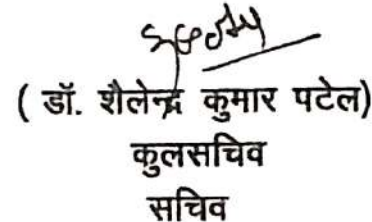 ( डॉ. शैलेन्द्र कुमार पटेल)
कुलसचिव
सचिव